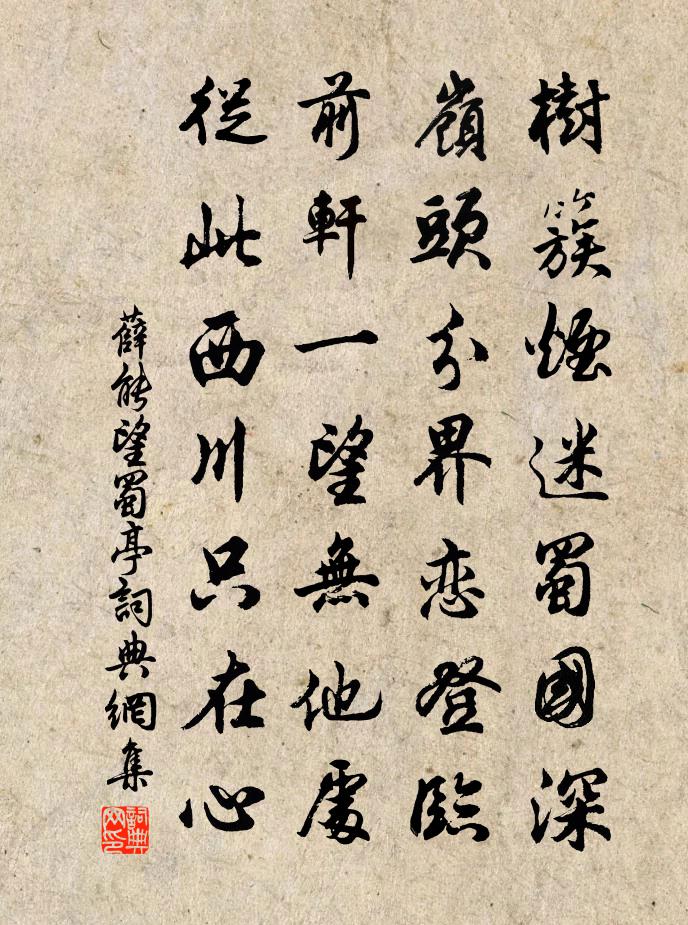 樹簇煙迷蜀國深
嶺頭分界恋登臨
前軒一望無他處
從此西川只在心
薛能望蜀亭詞典網集
詞典
网印